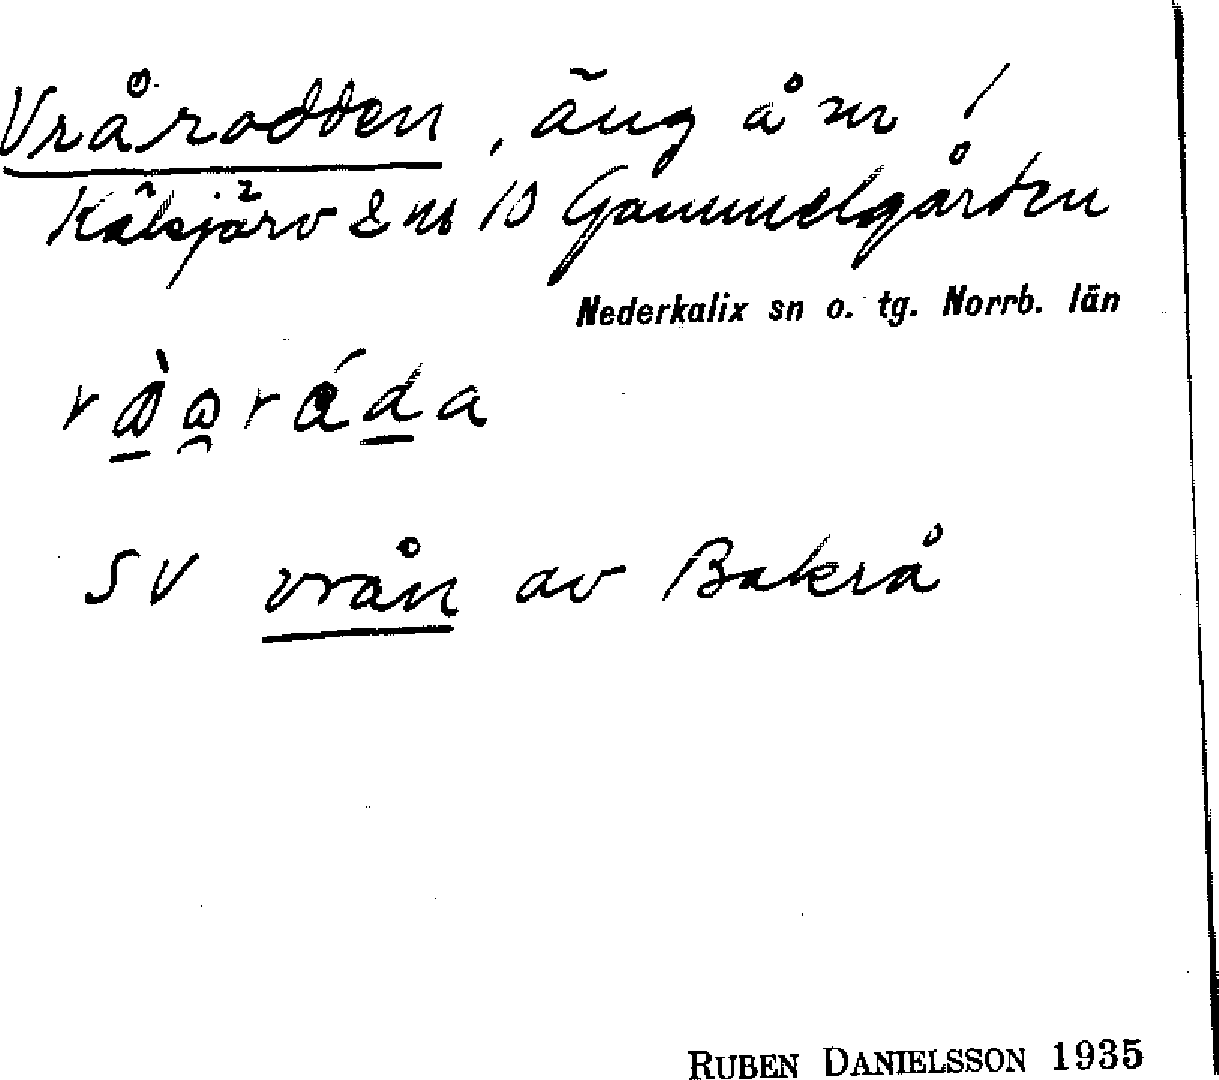 Vrårodden, äng å nr 1
Kälsjärv & nr 10 Gammelgården
Nederkalix sn o. tg. Norrb. län
SV vrån av Bakrå
RUBEN DANIELSSON 1935